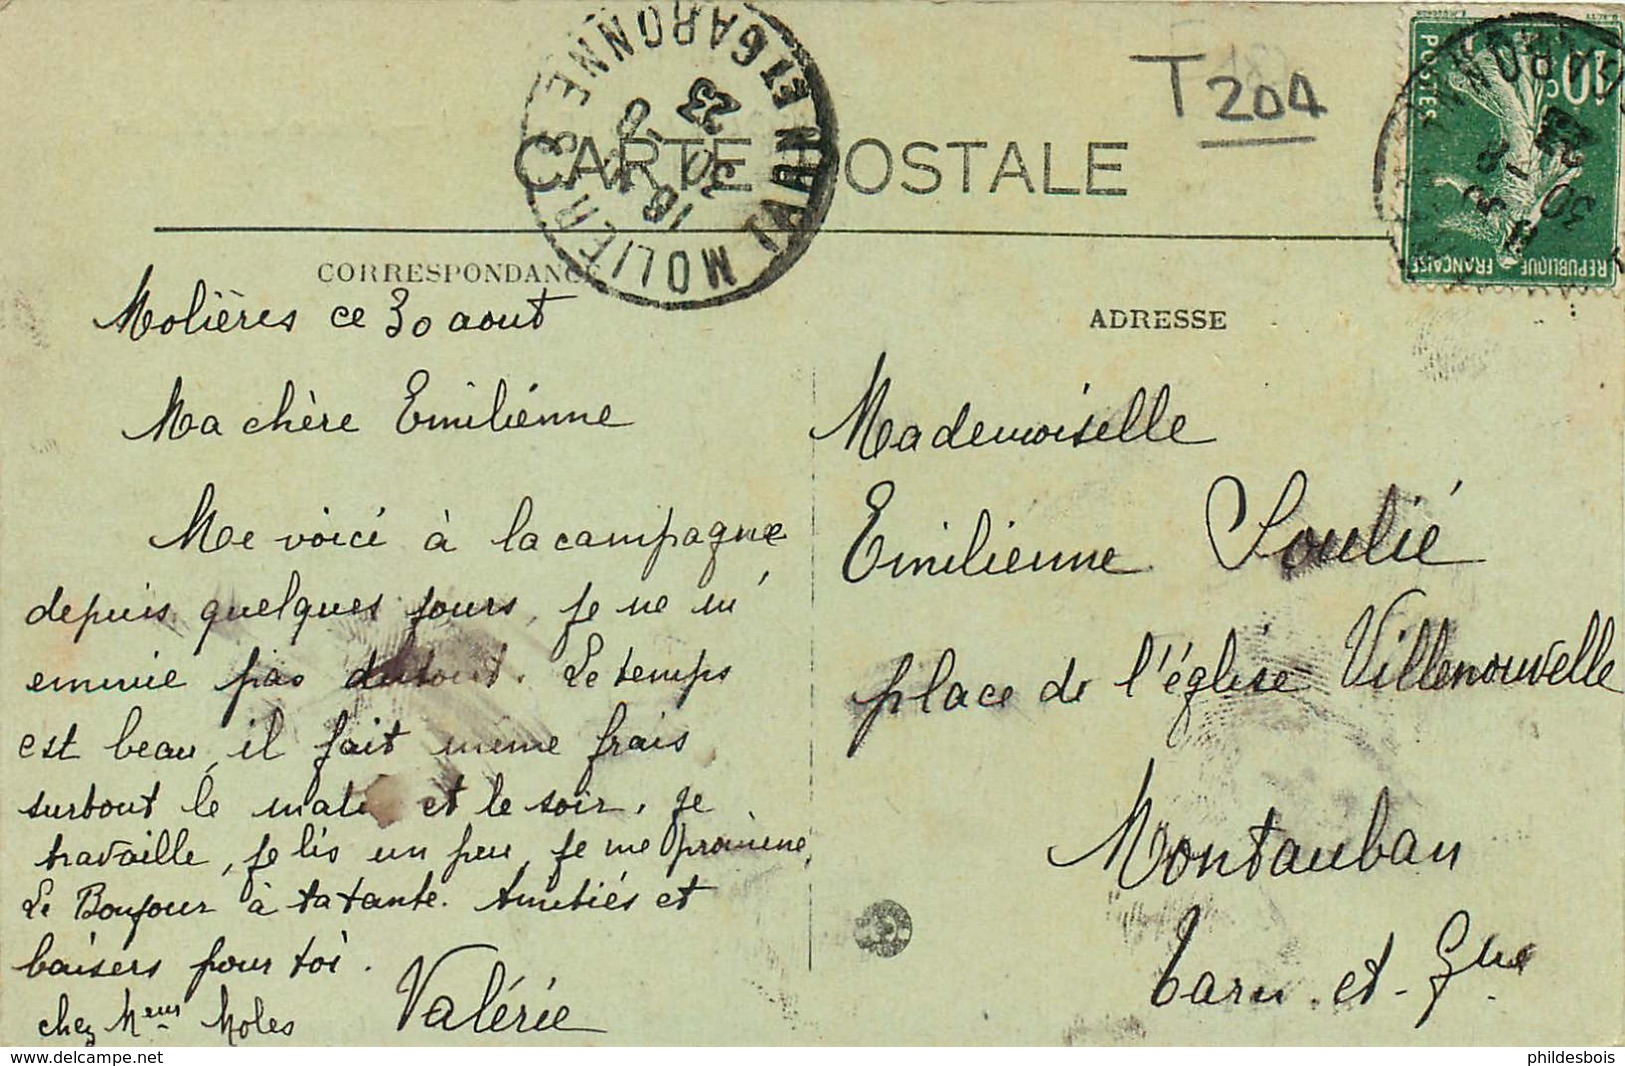 T 204
CARTE POSTALE
MOLIERES TARN ET GARONNE
18
30 - 8
23
10c
POSTES
REPUBLIQUE FRANÇAISE
CORRESPONDANCE
Molières ce 30 aout
Ma chère Emilienne
Me voici à la campagne
depuis quelques jours, je ne m'
ennuie pas dutout. Le temps
est beau, il fait même frais
surtout le matin et le soir. Je
travaille, je lis un peu, je me promène,
Le Bonjour à ta tante. Amitiés et
baisers pour toi.
chez Meur Moles
Valérie
ADRESSE
Mademoiselle
Emilienne Soulié
place de l'église Villenouvelle
Montauban
Tarn-et-Gne
delcampe.net
phildesbois